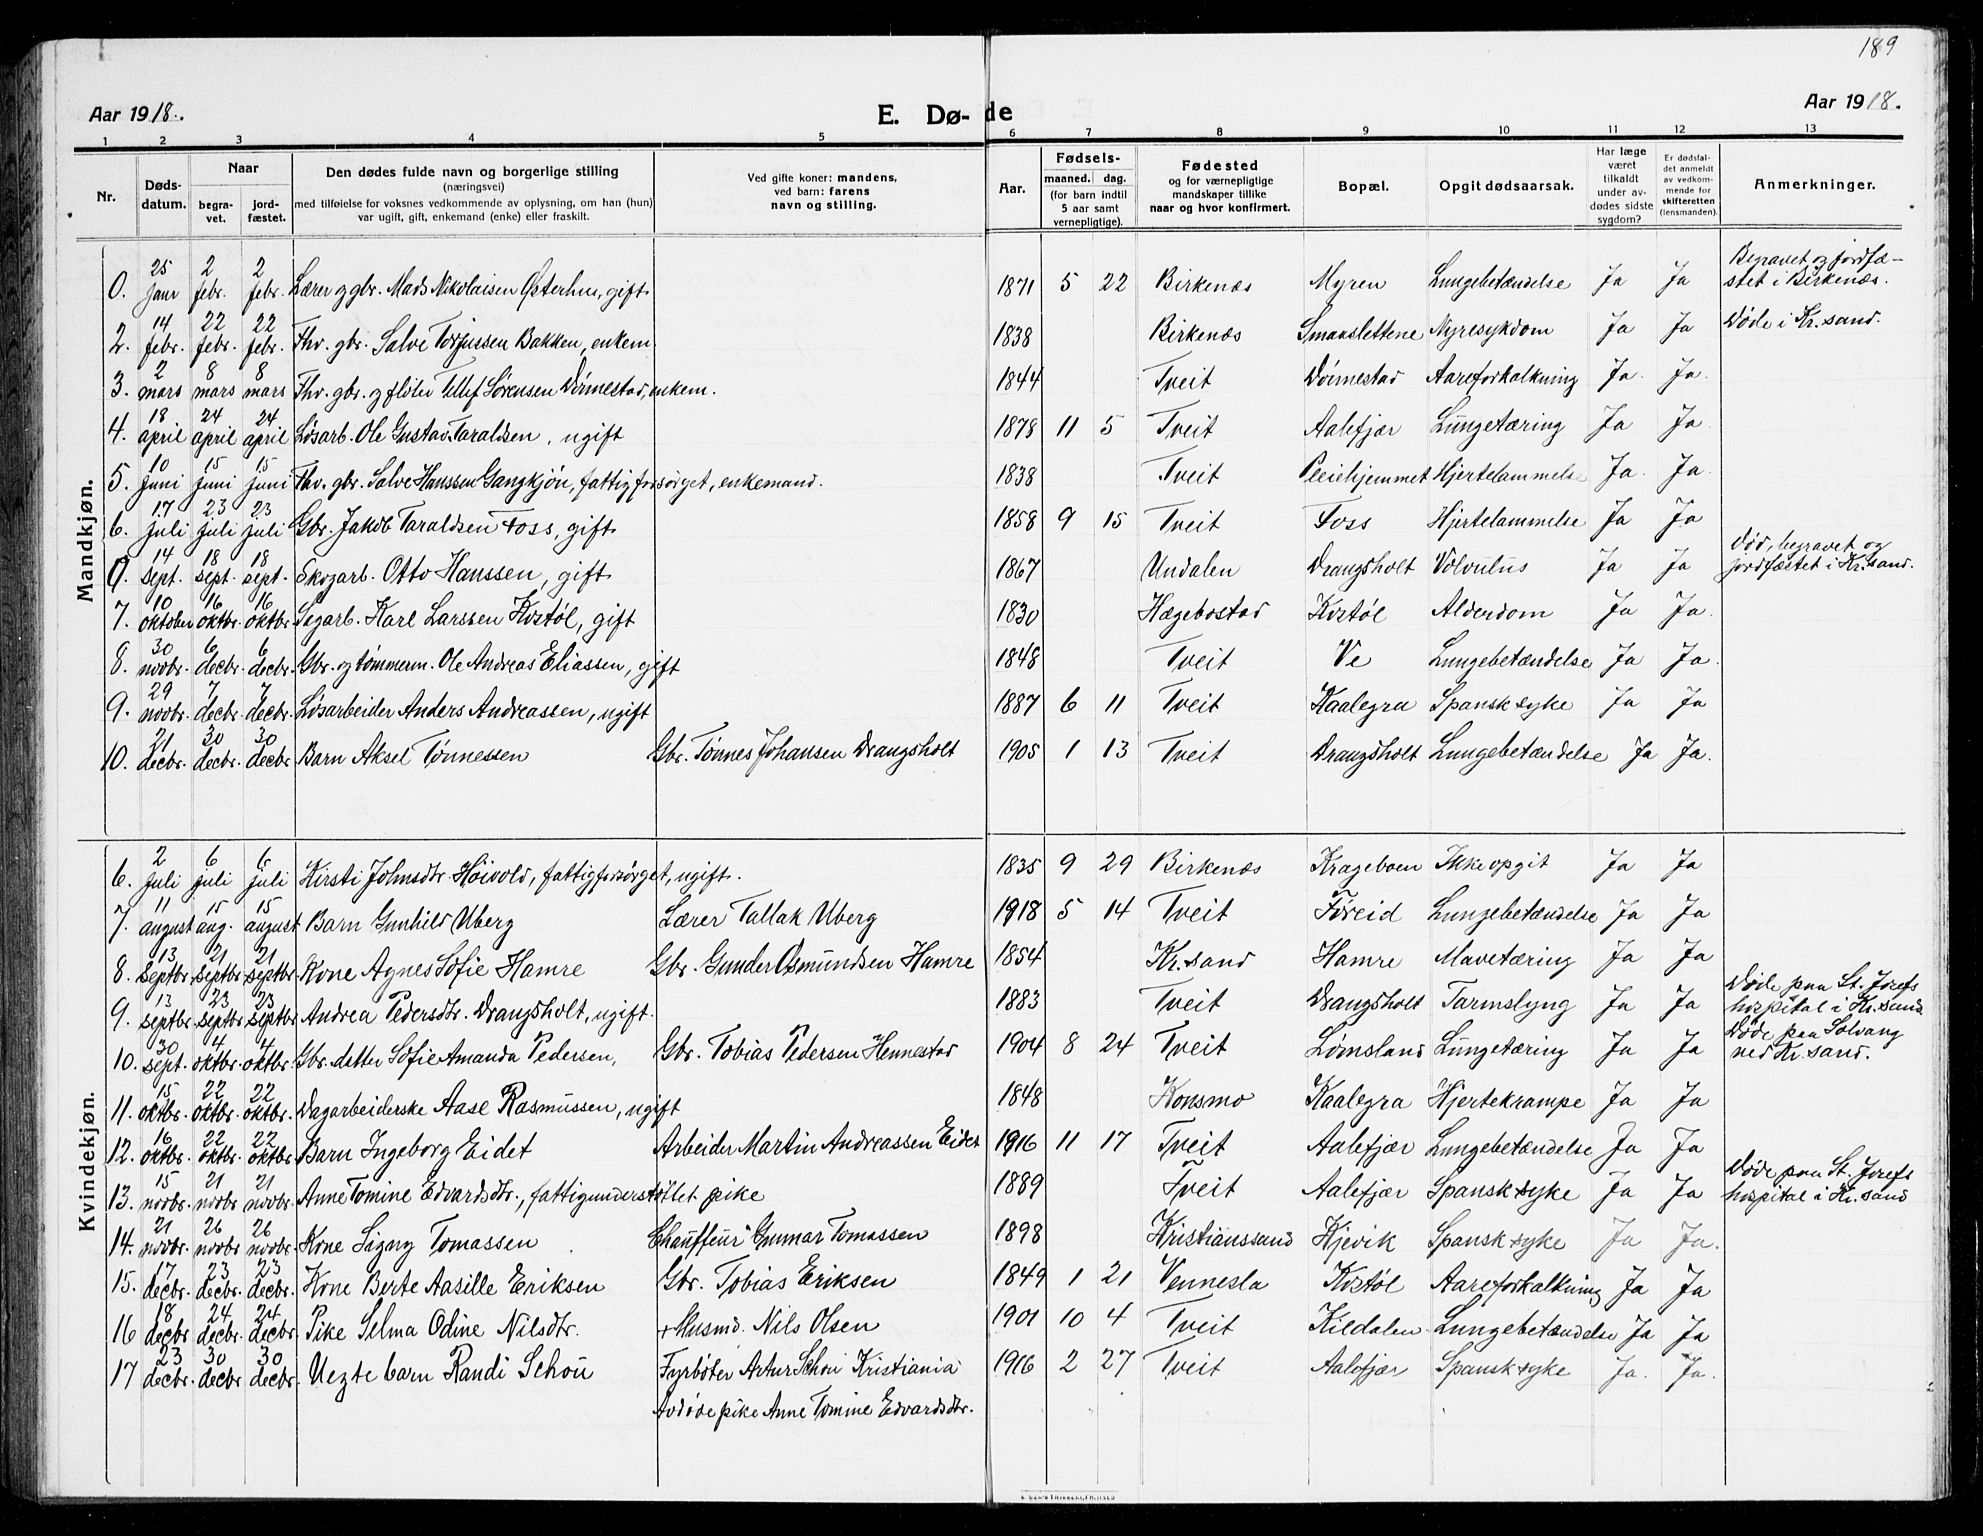 189
Aar 1918.
E. Dø-de
Aar 1918.
1 2 3 4 5 6 7 8 9 10 11 12 13
Nr.
Døds-datum.
Naar
begra-vet.
jord-fæstet.
Den dødes fulde navn og borgerlige stilling
(næringsvei)
med tilføielse for voksnes vedkommende av oplysning, om han (hun)
var ugift, gift, enkemand (enke) eller fraskilt.
Ved gifte koner: mandens,
ved barn: farens
navn og stilling.
Aar.
Fødsels-
maaned. dag.
(for barn indtil
5 aar samt
vernepligtige).
Fødested
og for værnepligtige
mandskaper tillike
naar og hvor konfirmert.
Bopæl.
Opgit dødsaarsak.
Har læge
været
tilkaldt
under av-
dødes sidste
sygdom?
Er dødsfal-
det anmeldt
av vedkom-
mende for
skifteretten
(lensmanden).
Anmerkninger.
Mandkjøn.
0. 25 janr 2 febr. 2 febr. Lærer og gbr. Mads Nikolaisen Østerhus, gift 1871 5 22 Birkenæs Myren Lungebetændelse Ja Ja Begravet og jordfæ-stet i Birkenæs.
2. 14 febr. 22 febr. 22 febr. Fhv. gbr. Salve Torjussen Bakken, enkem. 1838 Birkenæs Smaaslettene Nyresykdom Ja Ja Døde i Kr.sand.
3. 2 mars 8 mars 8 mars Fhv. gbr. og fløter Tellef Sørensen Dønnestad, enkem. 1844 Tveit Dønnestad Aareforkalkning Ja. Ja.
4. 18 april 24 april 24 april Løsarb. Ole Gustav Taraldsen, ugift 1878 11 5 Tveit Aalefjær Lungetæring Ja Ja.
5. 10 juni 15 juni 15 juni Fhv. gbr. Salve Hanssen Gangkjøn, fattigforsørget, enkemand. 1838 Tveit Pleiehjemmet Hjertelammelse Ja. Ja.
6. 17 juli 23 juli 23 juli Gbr. Jakob Taraldsen Foss, gift 1858 9 15 Tveit Foss Hjertelammelse Ja Ja
0. 14 sept. 18 sept. 18 sept. Skogarb. Otto Hanssen, gift 1867 Undalen Drangsholt Volvulus Ja Ja Død, begravet og jordfæstet i Kr.sand.
7. 10 oktober 16 oktbr. 16 oktbr. Sagarb. Karl Larssen Kostøl, gift 1830 Hægebostad Kostøl Alderdom Ja Ja.
8. 30 novbr. 6 decbr. 6 decbr. Gbr. og tømmerm. Ole Andreas Eliassen, gift 1848 Tveit Ve Lungebetændelse Ja Ja.
9. 29 novbr. 7 decbr. 7 decbr. Løsarbeider Anders Andreassen, ugift 1887 6 11 Tveit Kaalegra Spansk syke Ja Ja
10. 21 decbr. 30 decbr. 30 decbr. Barn Aksel Tønnessen Gbr. Tønnes Johansen Drangsholt 1905 1 13 Tveit Drangsholt Lungebetændelse Ja Ja.
Kvindekjøn.
6. 2 juli 6 juli 6 juli Kirsti Johnsdtr. Høivold, fattigforsørget, ugift. 1835 9 29 Birkenæs Krageboen Ikke opgit Ja Ja
7. 11 august 15 aug. 15 august Barn Gunhild Uberg Lærer Tallak Uberg 1918 5 14 Tveit Føreid Lungebetændelse Ja Ja
8. 13 septbr. 21 septbr. 21 septbr. Kone Agnes Sofie Hamre Gbr. Gunder Osmundsen Hamre 1854 Kr.sand Hamre Mavetæring Ja Ja
9. 13 septbr. 23 septbr. 23 septbr. Andrea Pedersdtr. Drangsholt, ugift. 1883 Tveit Drangsholt Tarmslyng Ja Ja Døde paa St. Josefs hospital i Kr.sand.
10. 30 sept. 4 oktbr. 4 oktbr. Gbr. datter Sofie Amanda Pedersen, Gbr. Tobias Pedersen Hennestad 1904 8 24 Tveit Lømsland Lungetæring Ja Ja Døde paa Solvang ved Kr.sand.
11. 15 oktbr. 22 oktbr. 22 oktbr. Dagarbeiderske Aase Rasmussen, ugift 1848 Konsmo Kaalegra Hjertekrampe Ja Ja
12. 16 oktbr. 22 oktbr. 22 oktbr. Barn Ingeborg Eidet Arbeider Martin Andreassen Eidet 1916 11 17 Tveit Aalefjær Lungebetændelse Ja Ja
13. 15 novbr. 21 novbr 21 novbr. Anne Tomine Edvardsdtr., fattigunderstøttet pike 1889 Tveit Aalefjær Spansk syke Ja Ja Døde paa St. Josefs hospital i Kr.sand
14. 21 novbr. 26 novbr 26 novbr. Kone Signy Tomassen Chauffeur Gunnar Tomassen 1898 Kristianssand Kjevik Spansk syke Ja Ja.
15. 17 decbr. 23 decbr. 23 decbr. Kone Berte Aasille Eriksen Gbr. Tobias Eriksen 1849 1 21 Vennesla Kostøl Aareforkalkning Ja Ja
16 18 decbr. 24 decbr. 24 decbr. Pike Selma Odine Nilsdtr. + Husmd. Nils Olsen 1901 10 4 Tveit Kildalen Lungebetændelse Ja Ja
17 23 decbr. 30 decbr. 30 decbr. Uegte barn Randi Schou Fyrbøter Artur Schou Kristiania 1916 2 27 Tveit Aalefjær Spansk syke Ja. Ja.
Avdøde pike Anne Tomine Edvardsdtr.